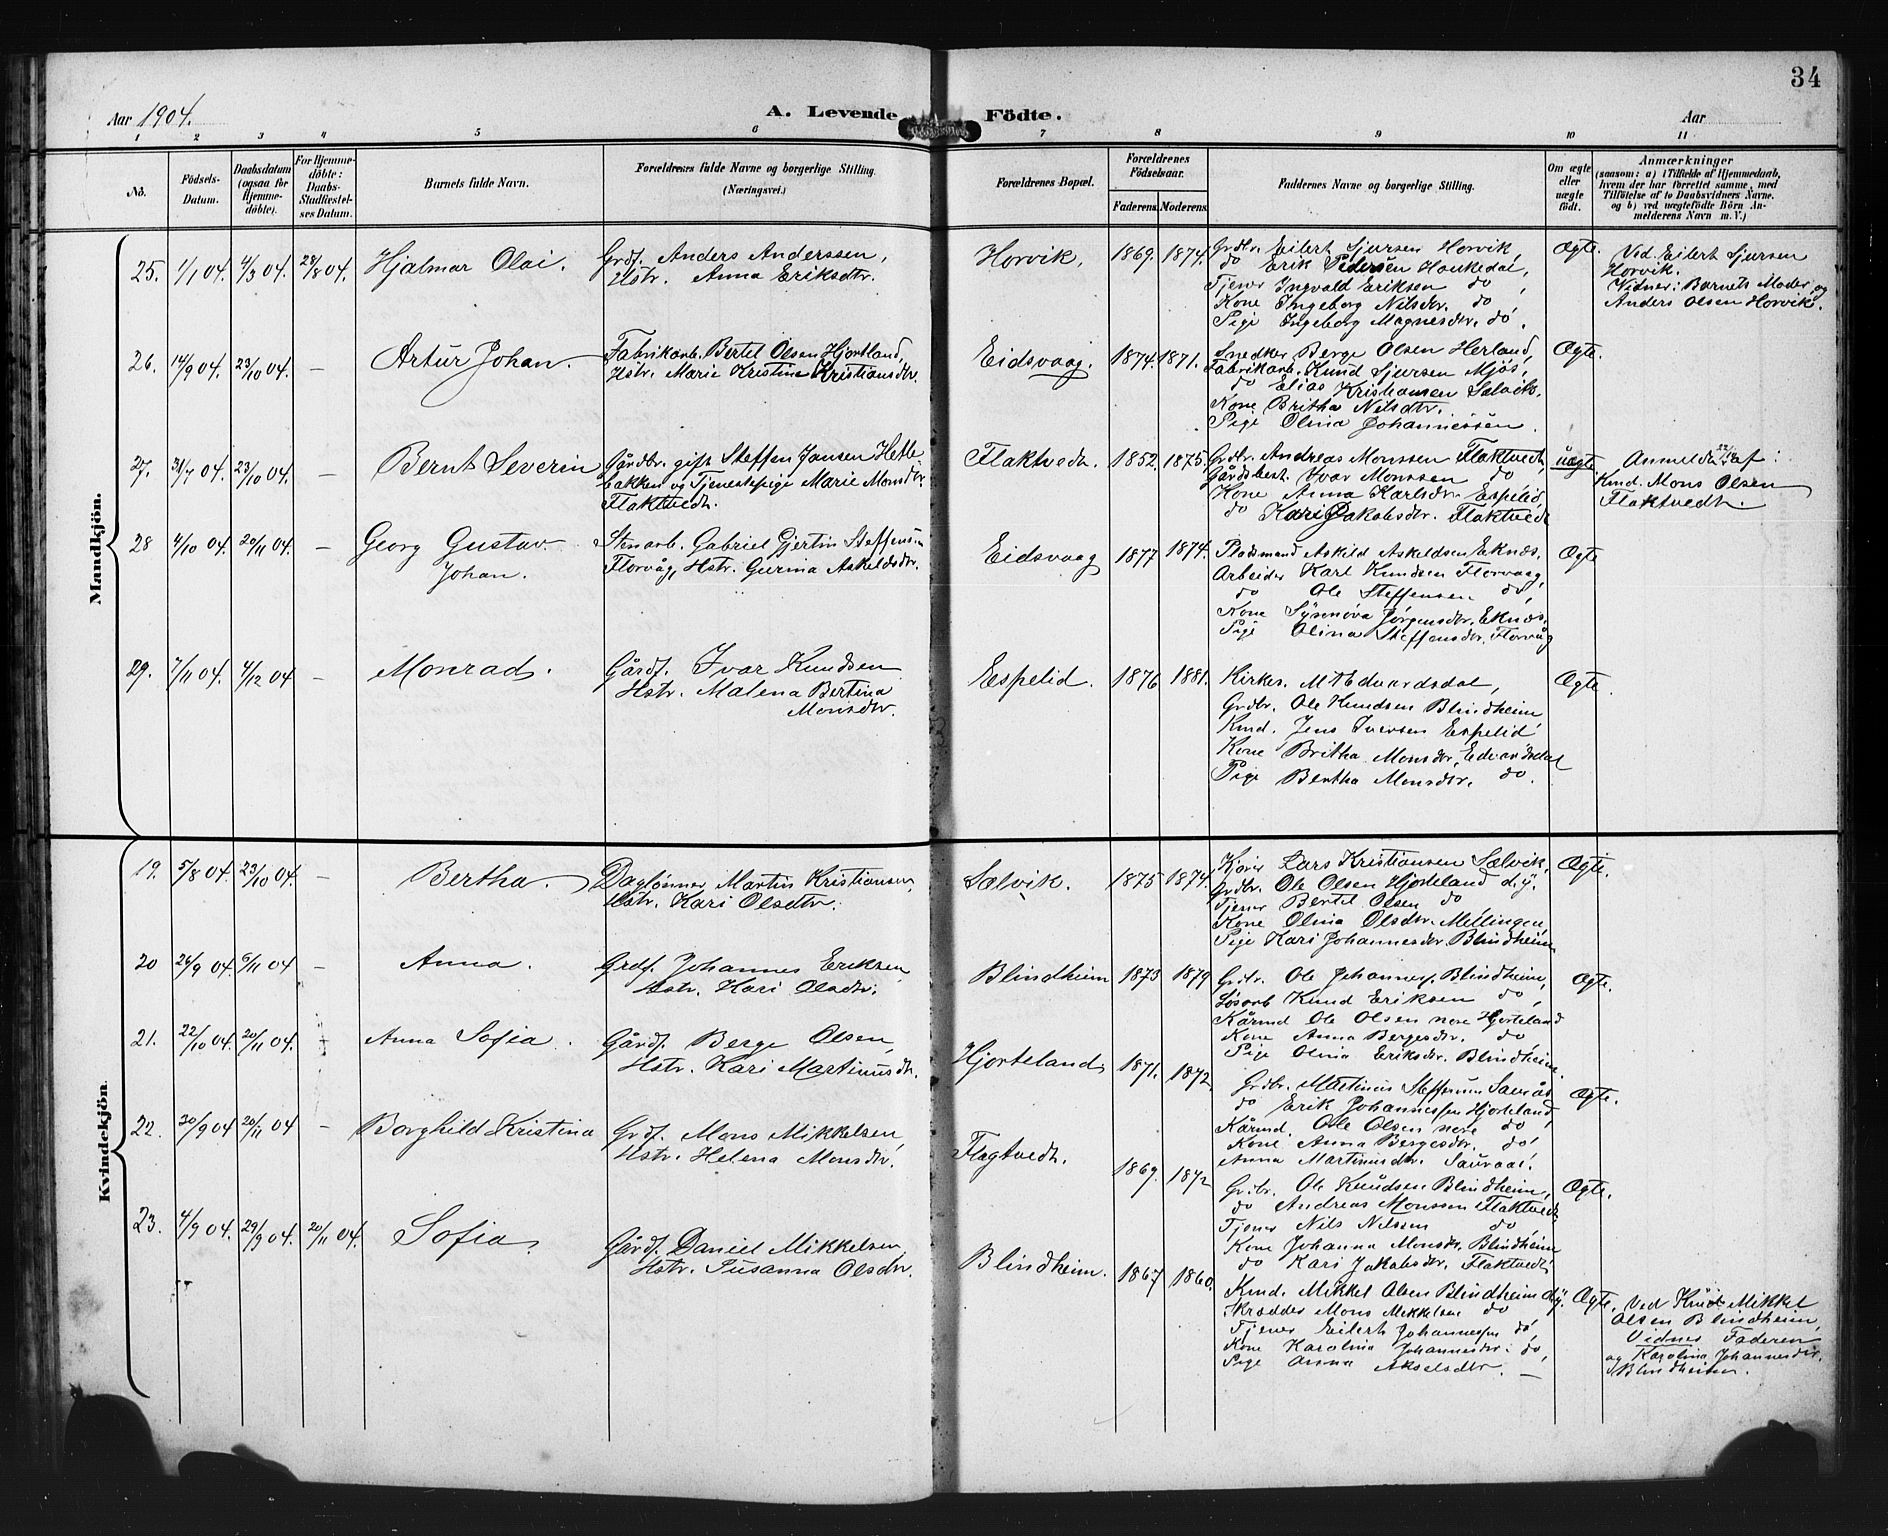 34
Aar 1904. A. Levende Födte. Aar
1 2 3 4 5 6 7 8 9 10 11
No.
Födsels-
Datum.
Daabsdatum
(ogsaa for
Hjemme-
döbte).
For Hjemme-
döbte:
Daabs-
Stadfæstel-
ses Datum.
Barnets fulde Navn.
Forældrenes fulde Navne og borgerlige Stilling.
(Næringsvei.)
Forældrenes Bopæl.
Forældrenes
Födselsaar.
Faderens. Moderens.
Faddernes Navne og borgerlige Stilling.
Om ægte
eller
uægte
födt.
Anmærkninger
(saasom: a) i Tilfælde af Hjemmedaab,
hvem der har forrettet samme, med
Tilföielse af to Daabsvidners Navne.
og b) ved uægtefödte Börn An-
melderens Navn m. V.)
Mandkjön.
25. 1/1 04. 4/3 04. 28/8 04. Hjalmar Olai.
Grdf. Anders Anderssen,
Hstr. Anna Eriksdtr.
Horvik. 1869. 1874.
Grdbr. Eilert Sjursen Horvik,
do Erik Pedersen Haukedal,
Tjener Ingvald Eriksen do,
Kone Ingeborg Nilsdtr. do,
Pige Ingeborg Magnesdtr. do.
Ægte.
Ved Eilert Sjursen
Horvik.
Vidner: Barnets Moder og
Anders Olsen Horvik.
26. 14/9 04. 23/10 04. — Artur Johan.
Fabrikarb. Bertel Olsen Hjortland,
Hstr. Marie Kristine Kristiansdtr.
Eidsvaag. 1874. 1871.
Snedker Berge Olsen Herland,
Fabrikarb. Knud Sjursen Mjös,
do Elias Kristiansen Sælvik.
Kone Britha Nilsdtr.
Pige Olina Johannessen.
Ægte.
27. 31/7 04. 23/10 04. — Bernt Severin
Gårdbr. gift Steffen Jansen Hetle-
bakken og Tjenestepige Marie Monsdtr
Flaktvedt.
Flaktvedt. 1852. 1875.
Grdbr. Andreas Monssen Flaktvedt
Gårdsbest. Ivar Monssen do
Kone Anna Karlsdtr. Espelid,
do Kari Jakobsdtr. Flaktvedt
uægte.
Anmeldt af:
Kmd. Mons Olsen
Flaktvedt.
28 4/10 04. 20/11 04. — Georg Gustav
Johan.
Stenarb. Gabriel Gjertin Steffensen
Florvåg, Hstr. Gurina Askeldsdtr.
Eidsvaag 1877 1874.
Pladsmand Askild Askeldsen Eknæs,
Arbeider Karl Knudsen Florvaag,
do Ole Steffensen do,
Kone Synneva Jörgensdtr. Eknæs,
Pige Olina Steffensdtr. Florvåg
Ægte
29. 7/11 04. 4/12 04 — Monrad.
Gårdf. Ivar Knudsen
Hstr. Malena Bertina
Monsdtr.
Espelid. 1876 1881.
Kirkes. M. Edvardsdal,
Grdbr. Ole Knudsen Blindheim,
Kmd. Jens Iversen Espelid,
Kone Britha Monsdtr. Edvardsdal
Pige Bertha Monsdtr. do.
Ægte.
Kvindekjön.
19. 5/8 04. 23/10 04. — Bertha.
Daglönner Martin Kristiansen,
Hstr. Kari Olsdtr.
Sælvik. 1875 1874.
Lars Kristiansen Sælvik,
Grdbr. Ole Olsen Hjorteland d.y.
Tjener Bertel Olsen do
Kone Olina Olsdtr. Mellingen,
Pige Kari Johannesdtr. Blindheim
Ægte.
20 26/9 04. 6/11 04 — Anna.
Grdf. Johannes Eriksen,
Hstr. Kari Olsdtr.
Blindheim 1873 1879
Grdbr. Ole Johanness. Blindheim,
Løsarb Knud Eriksen do,
Kårmd Ole Olsen nere Hjorteland
Kone Anna Bergesdtr. do
Pige Olina Eriksdtr. Blindheim.
Ægte.
21. 22/10 04. 20/11 04. Anna Sofia.
Gårdf. Berge Olsen,
Hstr. Kari Martinusdtr.
Hjorteland 1871. 1872
Grdbr. Martinus Steffensen Sauråe
do Erik Johannessen Hjorteland,
Kårmd Ole Olsen nere do,
Kone Anna Bergesdtr. do,
Anna Martinusdtr. Sauraae.
Ægte.
22. 30/9 04. 20/11 04 — Borghild Kristina
Grdf. Mons Mikkelsen,
Hstr. Helena Monsdtr.
Flagtvedt. 1869. 1872
Grdbr. Ole Knudsen Blindheim,
do Andreas Monssen Flaktvedt
Tjener Nils Nilssen do,
Kone Johanna Monsdtr. Blindheim
do Kari Jakobsdtr. Flaktvedt
Ægte.
23. 4/9 04. 29/9 04. 20/11 04. Sofia.
Gårdf. Daniel Mikkelsen,
Hstr. Susanna Olsdtr.
Blindheim. 1867 1860.
Kmd. Mikkel Olsen Blindheim d.y.
Skrædder Mons Mikkelsen do
Tjener Eilert Johannessen do,
Kone Karolina Johannesdtr. do,
Pige Anna Akselsdtr. —
Ægte.
Ved Knut Mikkel
Olsen Blindheim,
Vidner Faderen
og Karolina Johannesdtr.
Blindheim.